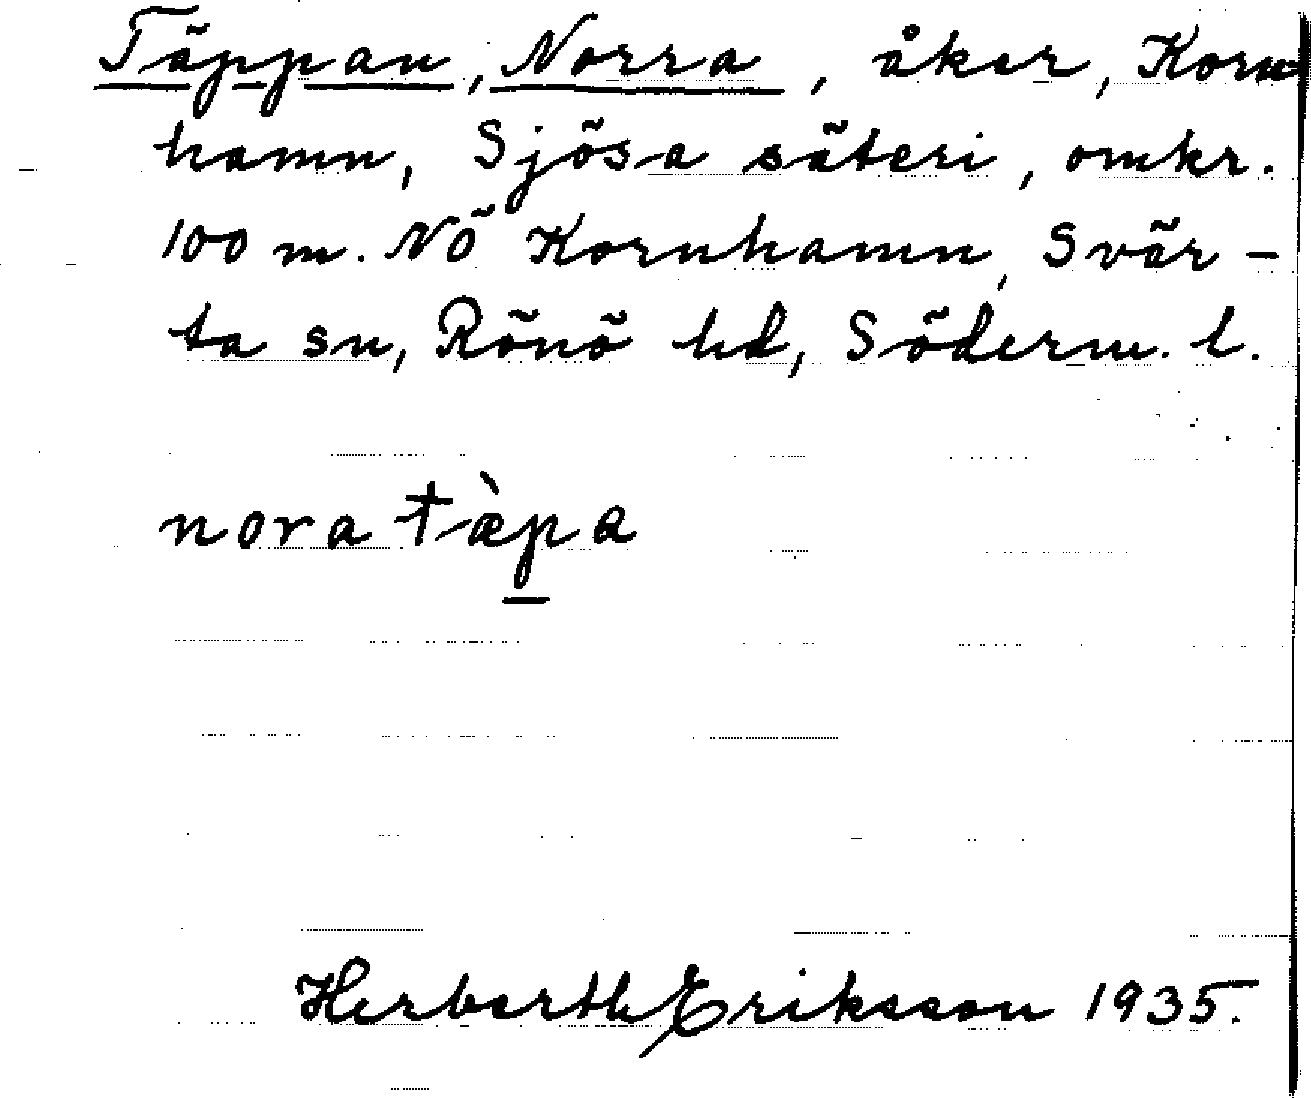 Täppan, Norra, åker, Korn
hamn, Sjösa säteri, omkr.
100 m. NÖ Kornhamn, Svär-
ta sn, Rönö hd, Söderm. l.
nora tæ̀pa
Herberth Eriksson 1935.